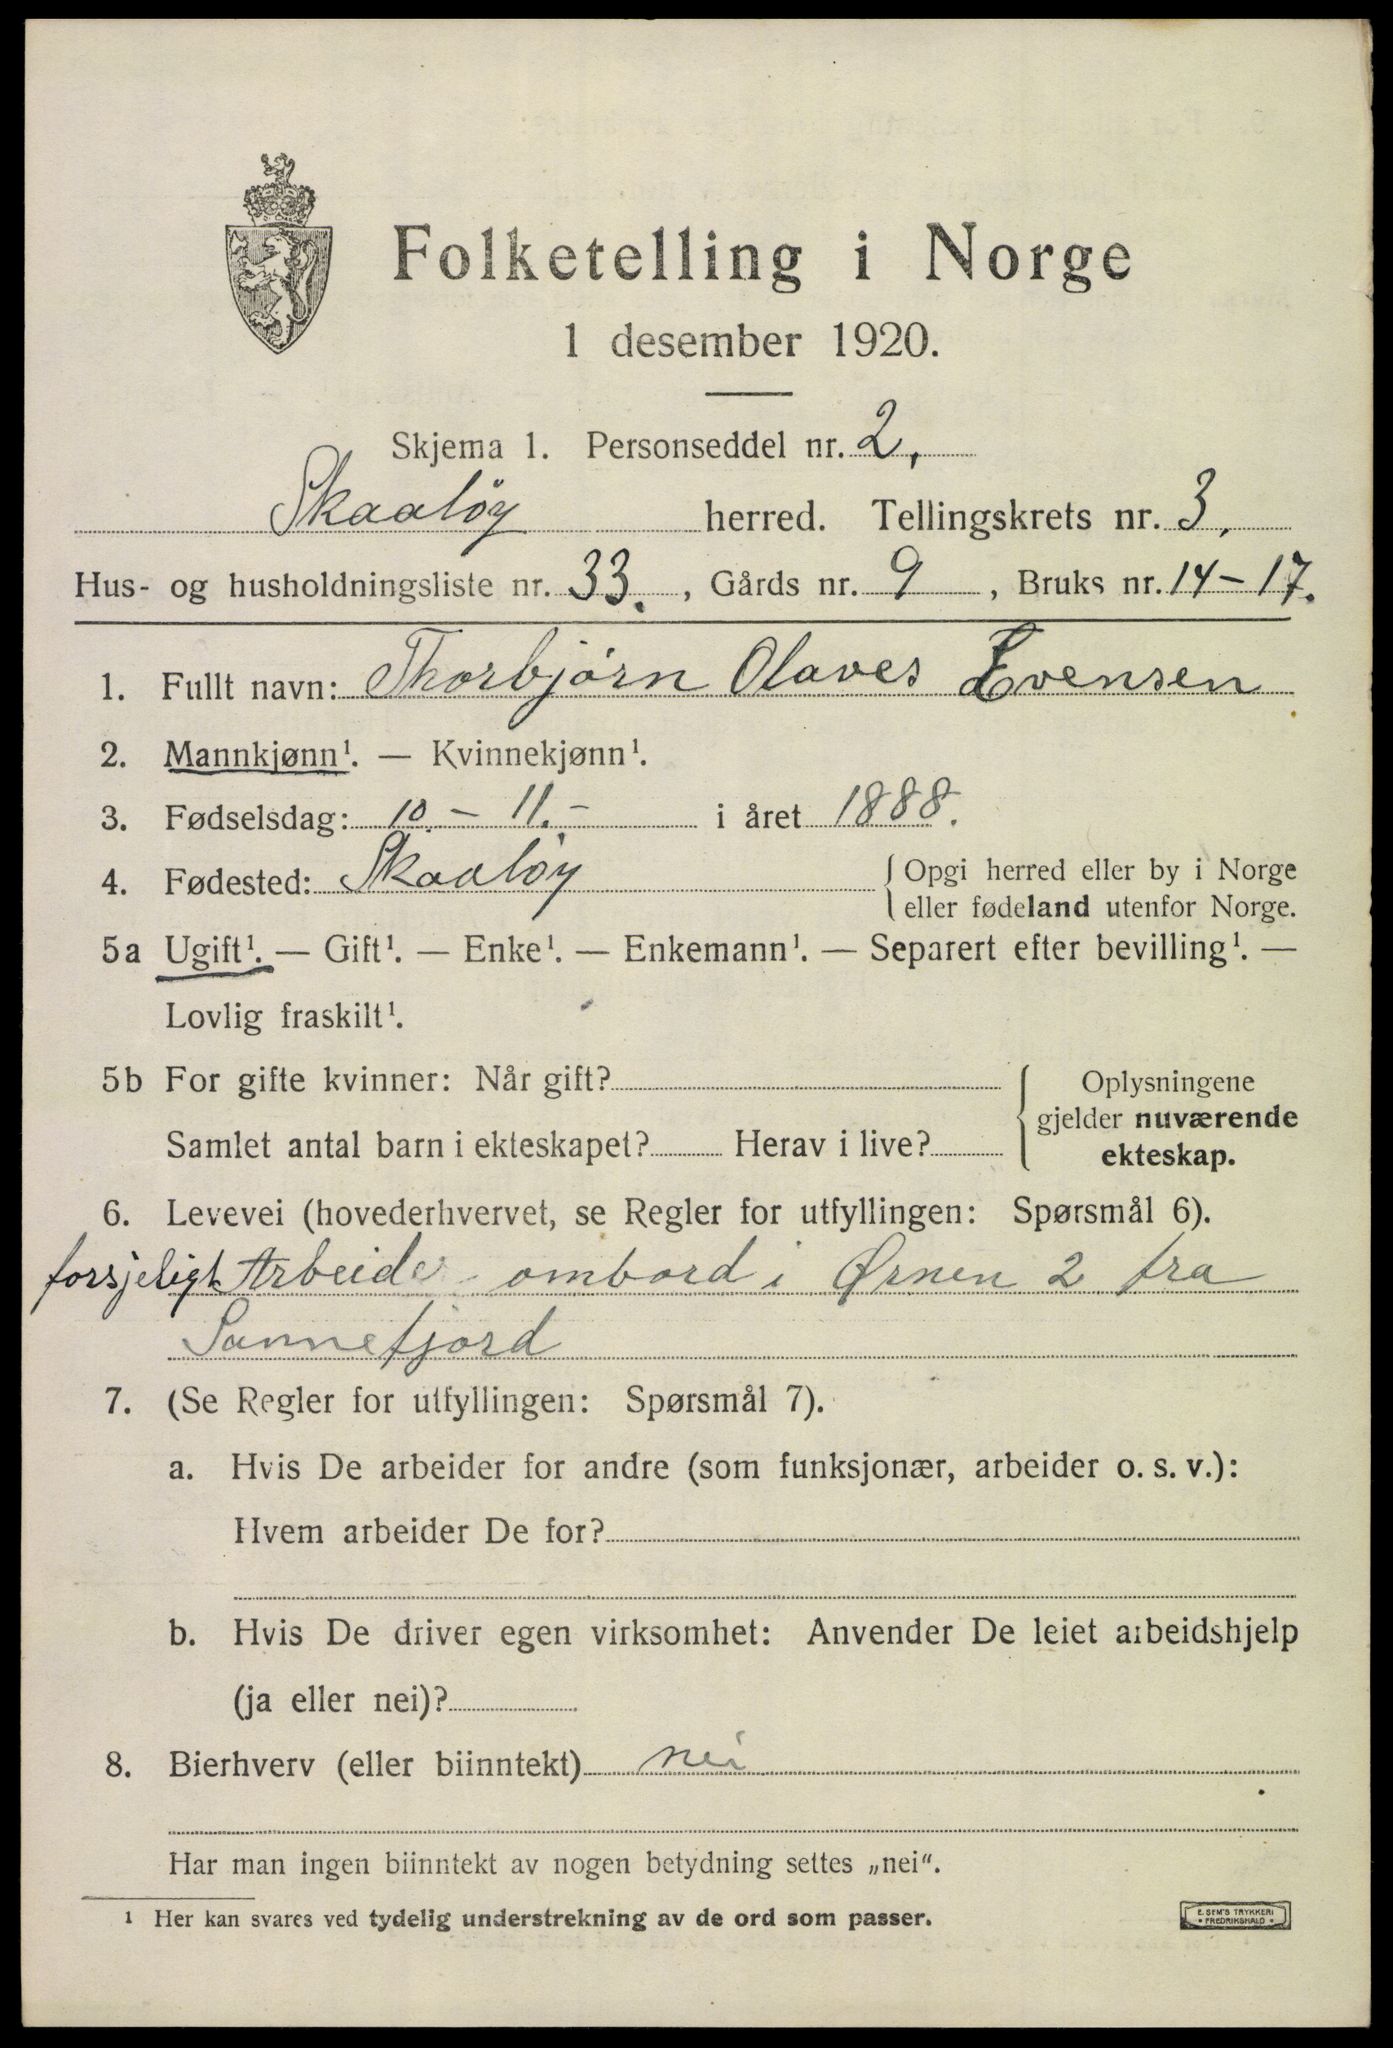 Folketelling i Norge
1 desember 1920.
Skjema 1. Personseddel nr. 2,
Skaaløy herred. Tellingskrets nr. 3.
Hus- og husholdningsliste nr. 33., Gårds nr. 9, Bruks nr. 14-17.
1. Fullt navn: Thorbjörn Olaves Evensen
2. Mannkjønn¹. — Kvinnekjønn¹.
3. Fødselsdag: 10. - 11. - i året 1888.
4. Fødested: Skaaløy { Opgi herred eller by i Norge
eller fødeland utenfor Norge.
5a Ugift¹. — Gift¹. — Enke¹. — Enkemann¹. — Separert efter bevilling¹. —
Lovlig fraskilt¹.
5b For gifte kvinner: Når gift? { Oplysningene
gjelder nuværende
Samlet antal barn i ekteskapet? Herav i live? ekteskap.
6. Levevei (hovederhvervet, se Regler for utfyllingen: Spørsmål 6).
forsjeligt Arbeide ombord i Ørnen 2 fra
Sannefjord
7. (Se Regler for utfyllingen: Spørsmål 7).
a. Hvis De arbeider for andre (som funksjonær, arbeider o. s. v.):
Hvem arbeider De for?
b. Hvis De driver egen virksomhet: Anvender De leiet arbeidshjelp
(ja eller nei)?
8. Bierhverv (eller biinntekt) nei
Har man ingen biinntekt av nogen betydning settes „nei".
¹ Her kan svares ved tydelig understrekning av de ord som passer.
E. SEM'S TRYKKERI
FREDRIKSHALD